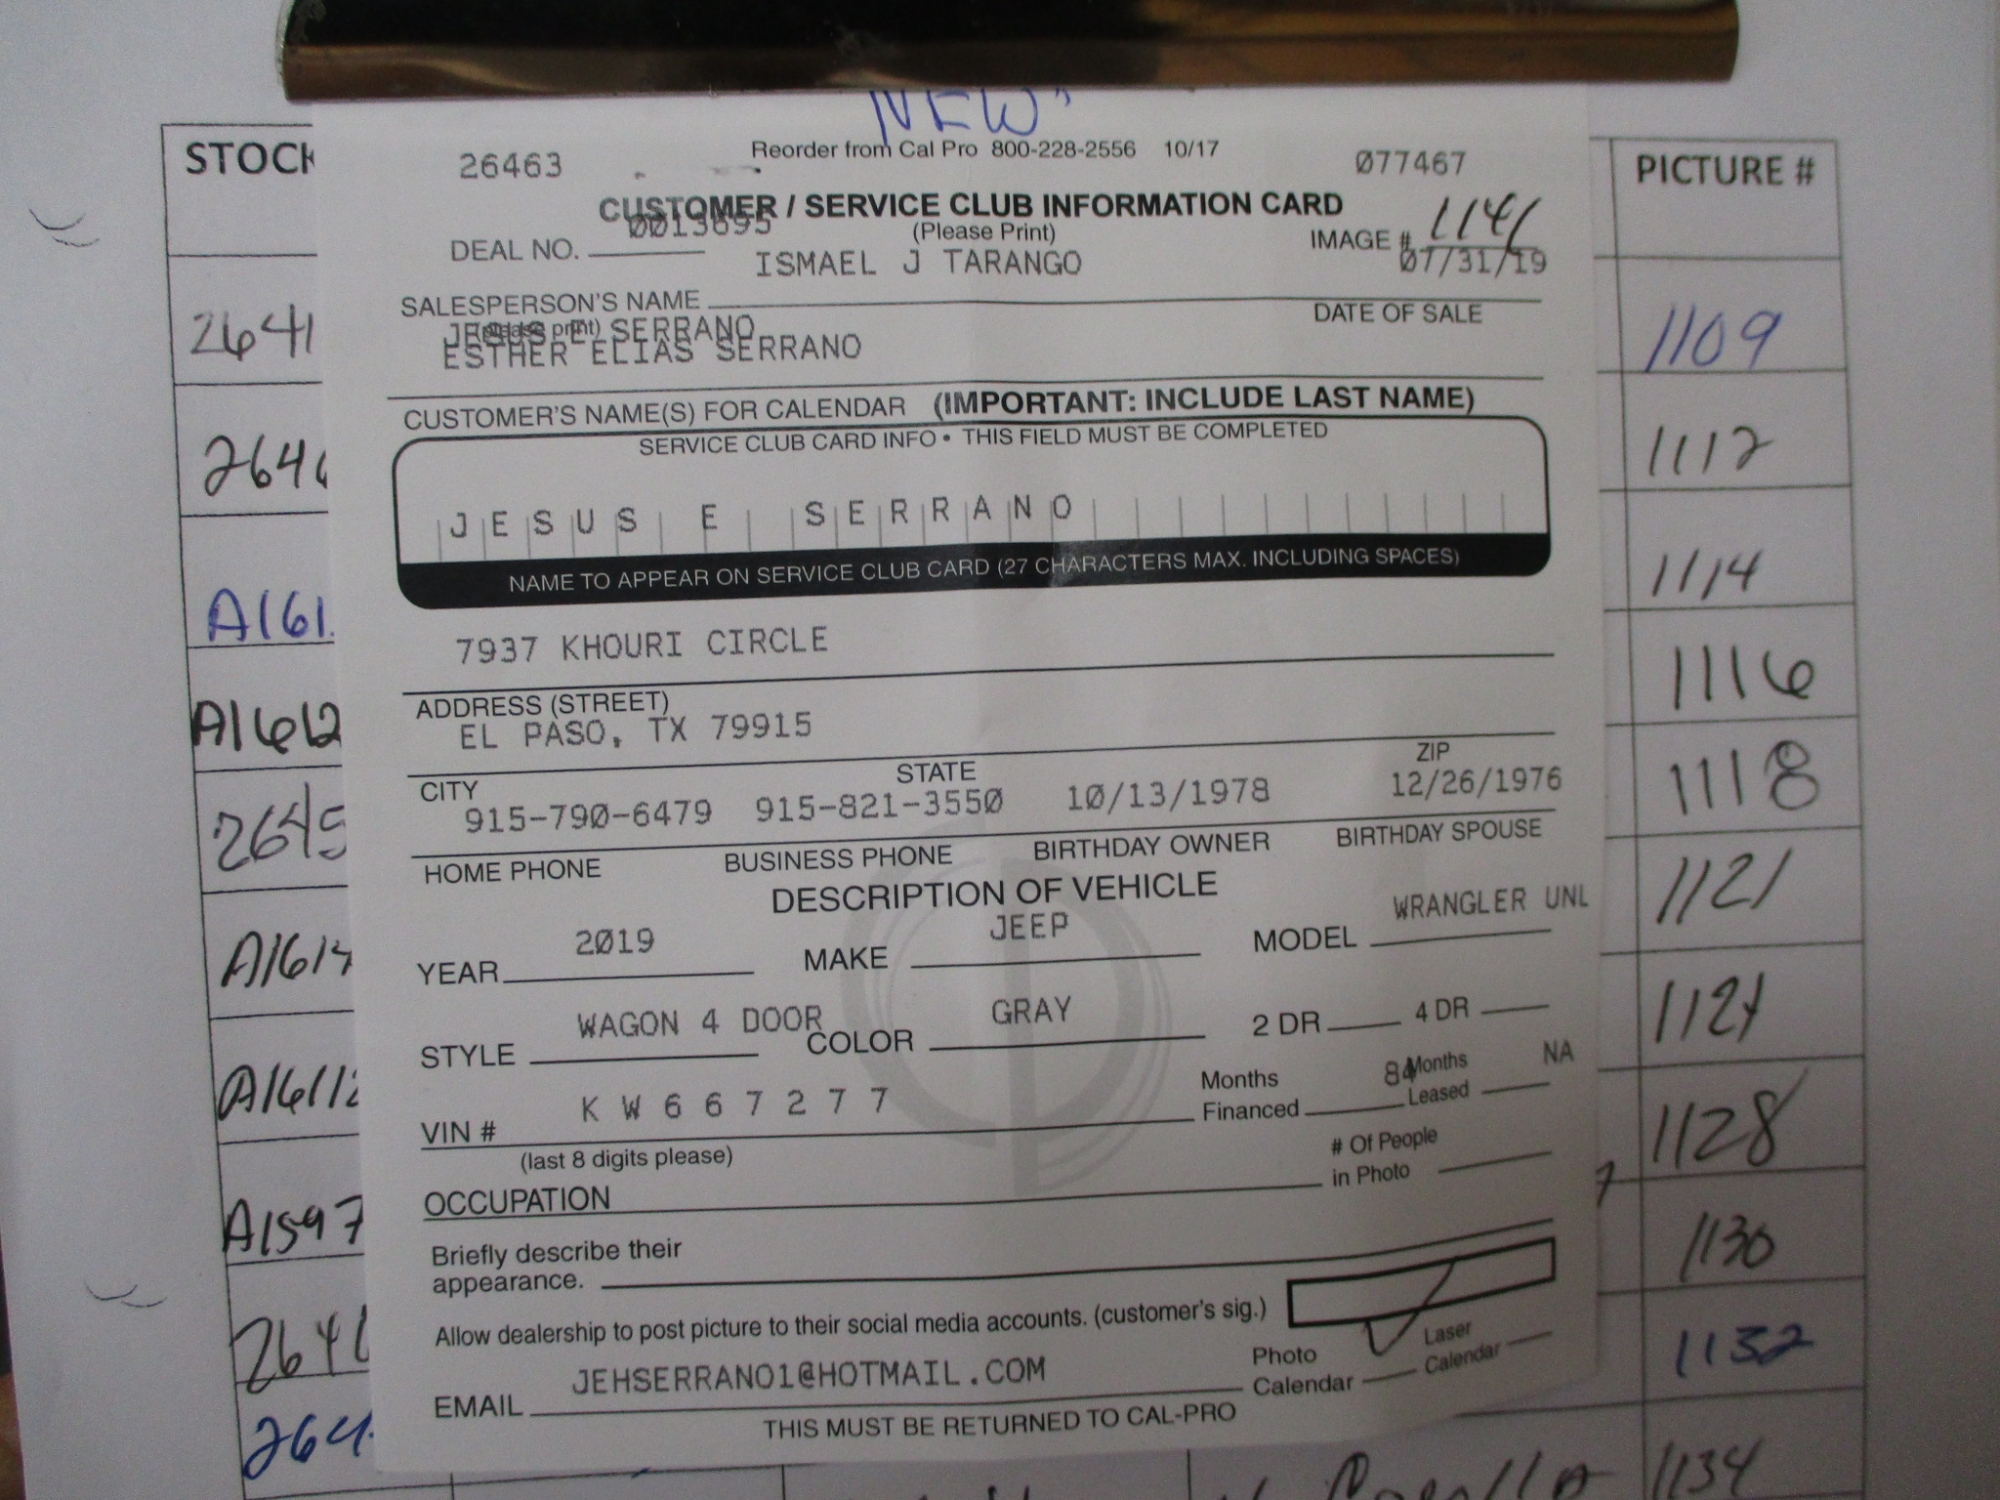 NEW
Reorder from Cal Pro 800-228-2556 10/17
26463 077467
CUSTOMER / SERVICE CLUB INFORMATION CARD
(Please Print)
DEAL NO. 0013695 IMAGE # 1141
ISMAEL J TARANGO 07/31/19
SALESPERSON'S NAME DATE OF SALE
(please print)
JESUS E SERRANO
ESTHER ELIAS SERRANO
CUSTOMER'S NAME(S) FOR CALENDAR (IMPORTANT: INCLUDE LAST NAME)
SERVICE CLUB CARD INFO • THIS FIELD MUST BE COMPLETED
JESUS E SERRANO
NAME TO APPEAR ON SERVICE CLUB CARD (27 CHARACTERS MAX. INCLUDING SPACES)
7937 KHOURI CIRCLE
ADDRESS (STREET)
EL PASO, TX 79915
CITY STATE ZIP
915-790-6479 915-821-3550 10/13/1978 12/26/1976
HOME PHONE BUSINESS PHONE BIRTHDAY OWNER BIRTHDAY SPOUSE
DESCRIPTION OF VEHICLE
YEAR 2019 MAKE JEEP MODEL WRANGLER UNL
STYLE WAGON 4 DOOR COLOR GRAY 2 DR 4 DR
VIN # K W 6 6 7 2 7 7 Months Financed 84 Months Leased NA
(last 8 digits please)
# Of People in Photo
OCCUPATION
Briefly describe their
appearance.
Allow dealership to post picture to their social media accounts. (customer's sig.)
EMAIL JEHSERRANO1@HOTMAIL.COM Photo Calendar Laser Calendar
THIS MUST BE RETURNED TO CAL-PRO
STOCK PICTURE #
2641 1109
1112
A161 1114
A1612 1116
2645 1118
A1614 1121
A16112 1124
A1597 1128
1130
1132
1134